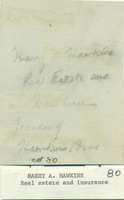 Harry A Hawkins
Real Estate and
Insurance
Hawkins Bros
80
HARRY A. HAWKINS
Real estate and insurance
80